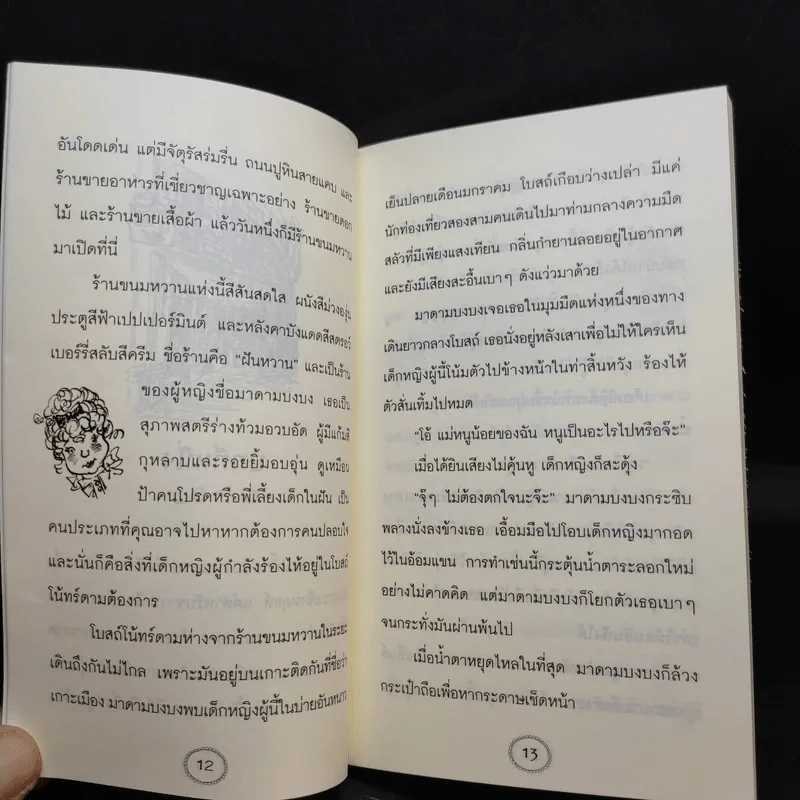 อันโดดเด่น แต่มีจัตุรัสร่มรื่น ถนนปูหินสายแคบ และ
ร้านขายอาหารที่เชี่ยวชาญเฉพาะอย่าง ร้านขายดอก
ไม้ และร้านขายเสื้อผ้า แล้ววันหนึ่งก็มีร้านขนมหวาน
มาเปิดที่นี่
ร้านขนมหวานแห่งนี้สีสันสดใส ผนังสีม่วงองุ่น
ประตูสีฟ้าเปปเปอร์มินต์ และหลังคาบังแดดสีสตรอว์
เบอร์รี่สลับสีครีม ชื่อร้านคือ “ฝันหวาน” และเป็นร้าน
ของผู้หญิงชื่อมาดามบงบง เธอเป็น
สุภาพสตรีร่างท้วมอวบอัด ผู้มีแก้มสี
กุหลาบและรอยยิ้มอบอุ่น ดูเหมือน
ป้าคนโปรดหรือพี่เลี้ยงเด็กในฝัน เป็น
คนประเภทที่คุณอาจไปหาหากต้องการคนปลอบใจ
และนั่นก็คือสิ่งที่เด็กหญิงผู้กำลังร้องไห้อยู่ในโบสถ์
โน้ทร์ดามต้องการ
โบสถ์โน้ทร์ดามห่างจากร้านขนมหวานในระยะ
เดินถึงกันไม่ไกล เพราะมันอยู่บนเกาะติดกันที่ชื่อว่า
เกาะเมือง มาดามบงบงพบเด็กหญิงผู้นี้ในบ่ายอันหนาว
12
เย็นปลายเดือนมกราคม โบสถ์เกือบว่างเปล่า มีแค่
นักท่องเที่ยวสองสามคนเดินไปมาท่ามกลางความมืด
สลัวที่มีเพียงแสงเทียน กลิ่นกำยานลอยอยู่ในอากาศ
และยังมีเสียงสะอื้นเบาๆ ดังแว่วมาด้วย
มาดามบงบงเจอเธอในมุมมืดแห่งหนึ่งของทาง
เดินยาวกลางโบสถ์ เธอนั่งอยู่หลังเสาเพื่อไม่ให้ใครเห็น
เด็กหญิงผู้นี้โน้มตัวไปข้างหน้าในท่าสิ้นหวัง ร้องไห้
ตัวสั่นเทิ้มไปหมด
“โอ้ แม่หนูน้อยของฉัน หนูเป็นอะไรไปหรือจ๊ะ”
เมื่อได้ยินเสียงไม่คุ้นหู เด็กหญิงก็สะดุ้ง
“จุ๊ๆ ไม่ต้องตกใจนะจ๊ะ” มาดามบงบงกระซิบ
พลางนั่งลงข้างเธอ เอื้อมมือไปโอบเด็กหญิงมากอด
ไว้ในอ้อมแขน การทำเช่นนี้กระตุ้นน้ำตาระลอกใหม่
อย่างไม่คาดคิด แต่มาดามบงบงก็โยกตัวเธอเบาๆ
จนกระทั่งมันผ่านพ้นไป
เมื่อน้ำตาหยุดไหลในที่สุด มาดามบงบงก็ล้วง
กระเป๋าถือเพื่อหากระดาษเช็ดหน้า
13